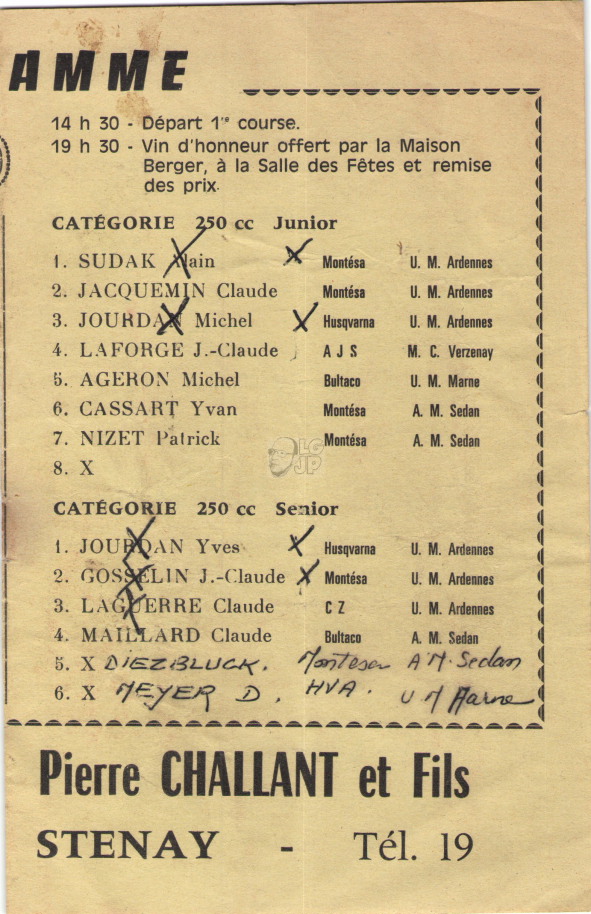 AMME
14 h 30 - Départ 1re course.
19 h 30 - Vin d'honneur offert par la Maison
Berger, à la Salle des Fêtes et remise
des prix.
CATÉGORIE 250 cc Junior
1. SUDAK Alain X Montésa U. M. Ardennes
2. JACQUEMIN Claude Montésa U. M. Ardennes
3. JOURDAN Michel X Husqvarna U. M. Ardennes
4. LAFORGE J.-Claude A J S M. C. Verzenay
5. AGERON Michel Bultaco U. M. Marne
6. CASSART Yvan Montésa A. M. Sedan
7. NIZET Patrick Montésa A. M. Sedan
8. X
LG
JP
CATÉGORIE 250 cc Senior
1. JOURDAN Yves X Husqvarna U. M. Ardennes
2. GOSSELIN J.-Claude X Montésa U. M. Ardennes
3. LAGUERRE Claude C Z U. M. Ardennes
4. MAILLARD Claude Bultaco A. M. Sedan
5. X DIEZBLUCK. Montesa A M. Sedan
6. X MEYER D. HVA. U M Marne
Pierre CHALLANT et Fils
STENAY - Tél. 19